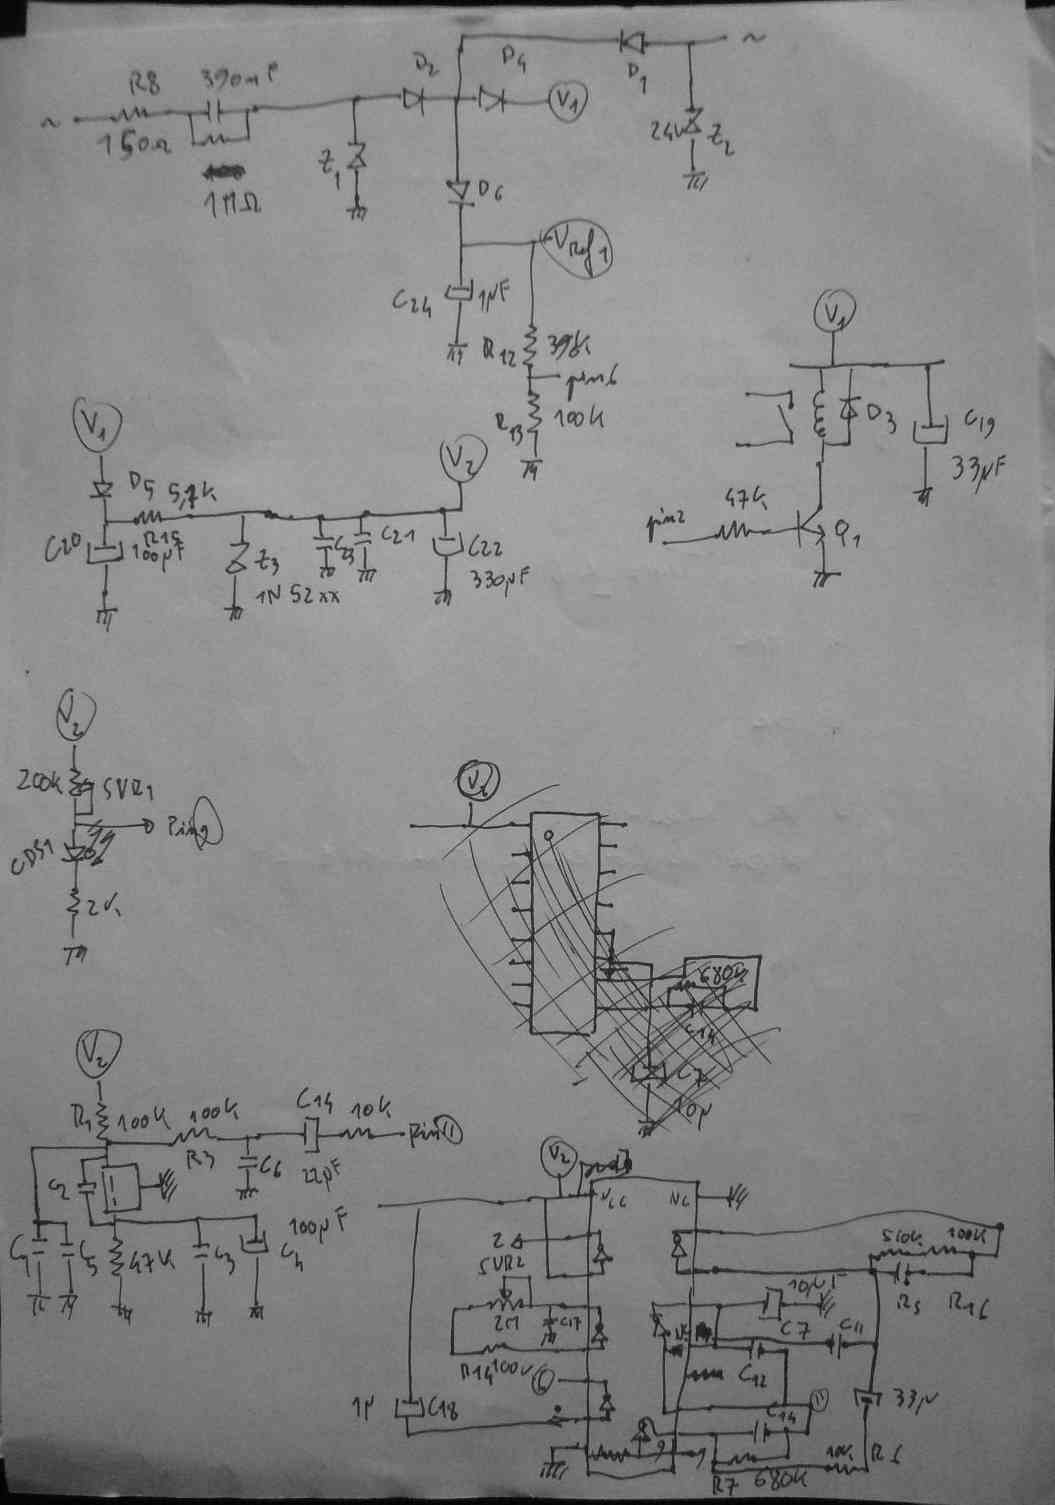 R8
390nF
D2
D4
D1
~
~
150Ω
V1
24V
Z2
Z1
1MΩ
D6
VRef1
C24
1µF
R12
39K
pin6
R13
100K
V1
D3
C19
33µF
47K
pin2
Q1
V1
D5
5,7K
R15
C20
100µF
Z3
1N52xx
C23
C21
V2
C22
330µF
V2
200K
SVR1
Pin9
CDS1
2K
V2
680Ω
C14
C7
10µ
V2
R1
100K
100K
R3
C14
10K
Pin 11
C6
22µF
C2
C1
C5
47K
C3
C4
100µF
V2
VCC
NC
2
SVR2
2M
C17
R14
100K
6
1µ
C18
510K
100K
10µF
R5
R16
C7
C11
C12
11
33µ
C14
R7
680K
10K
R6